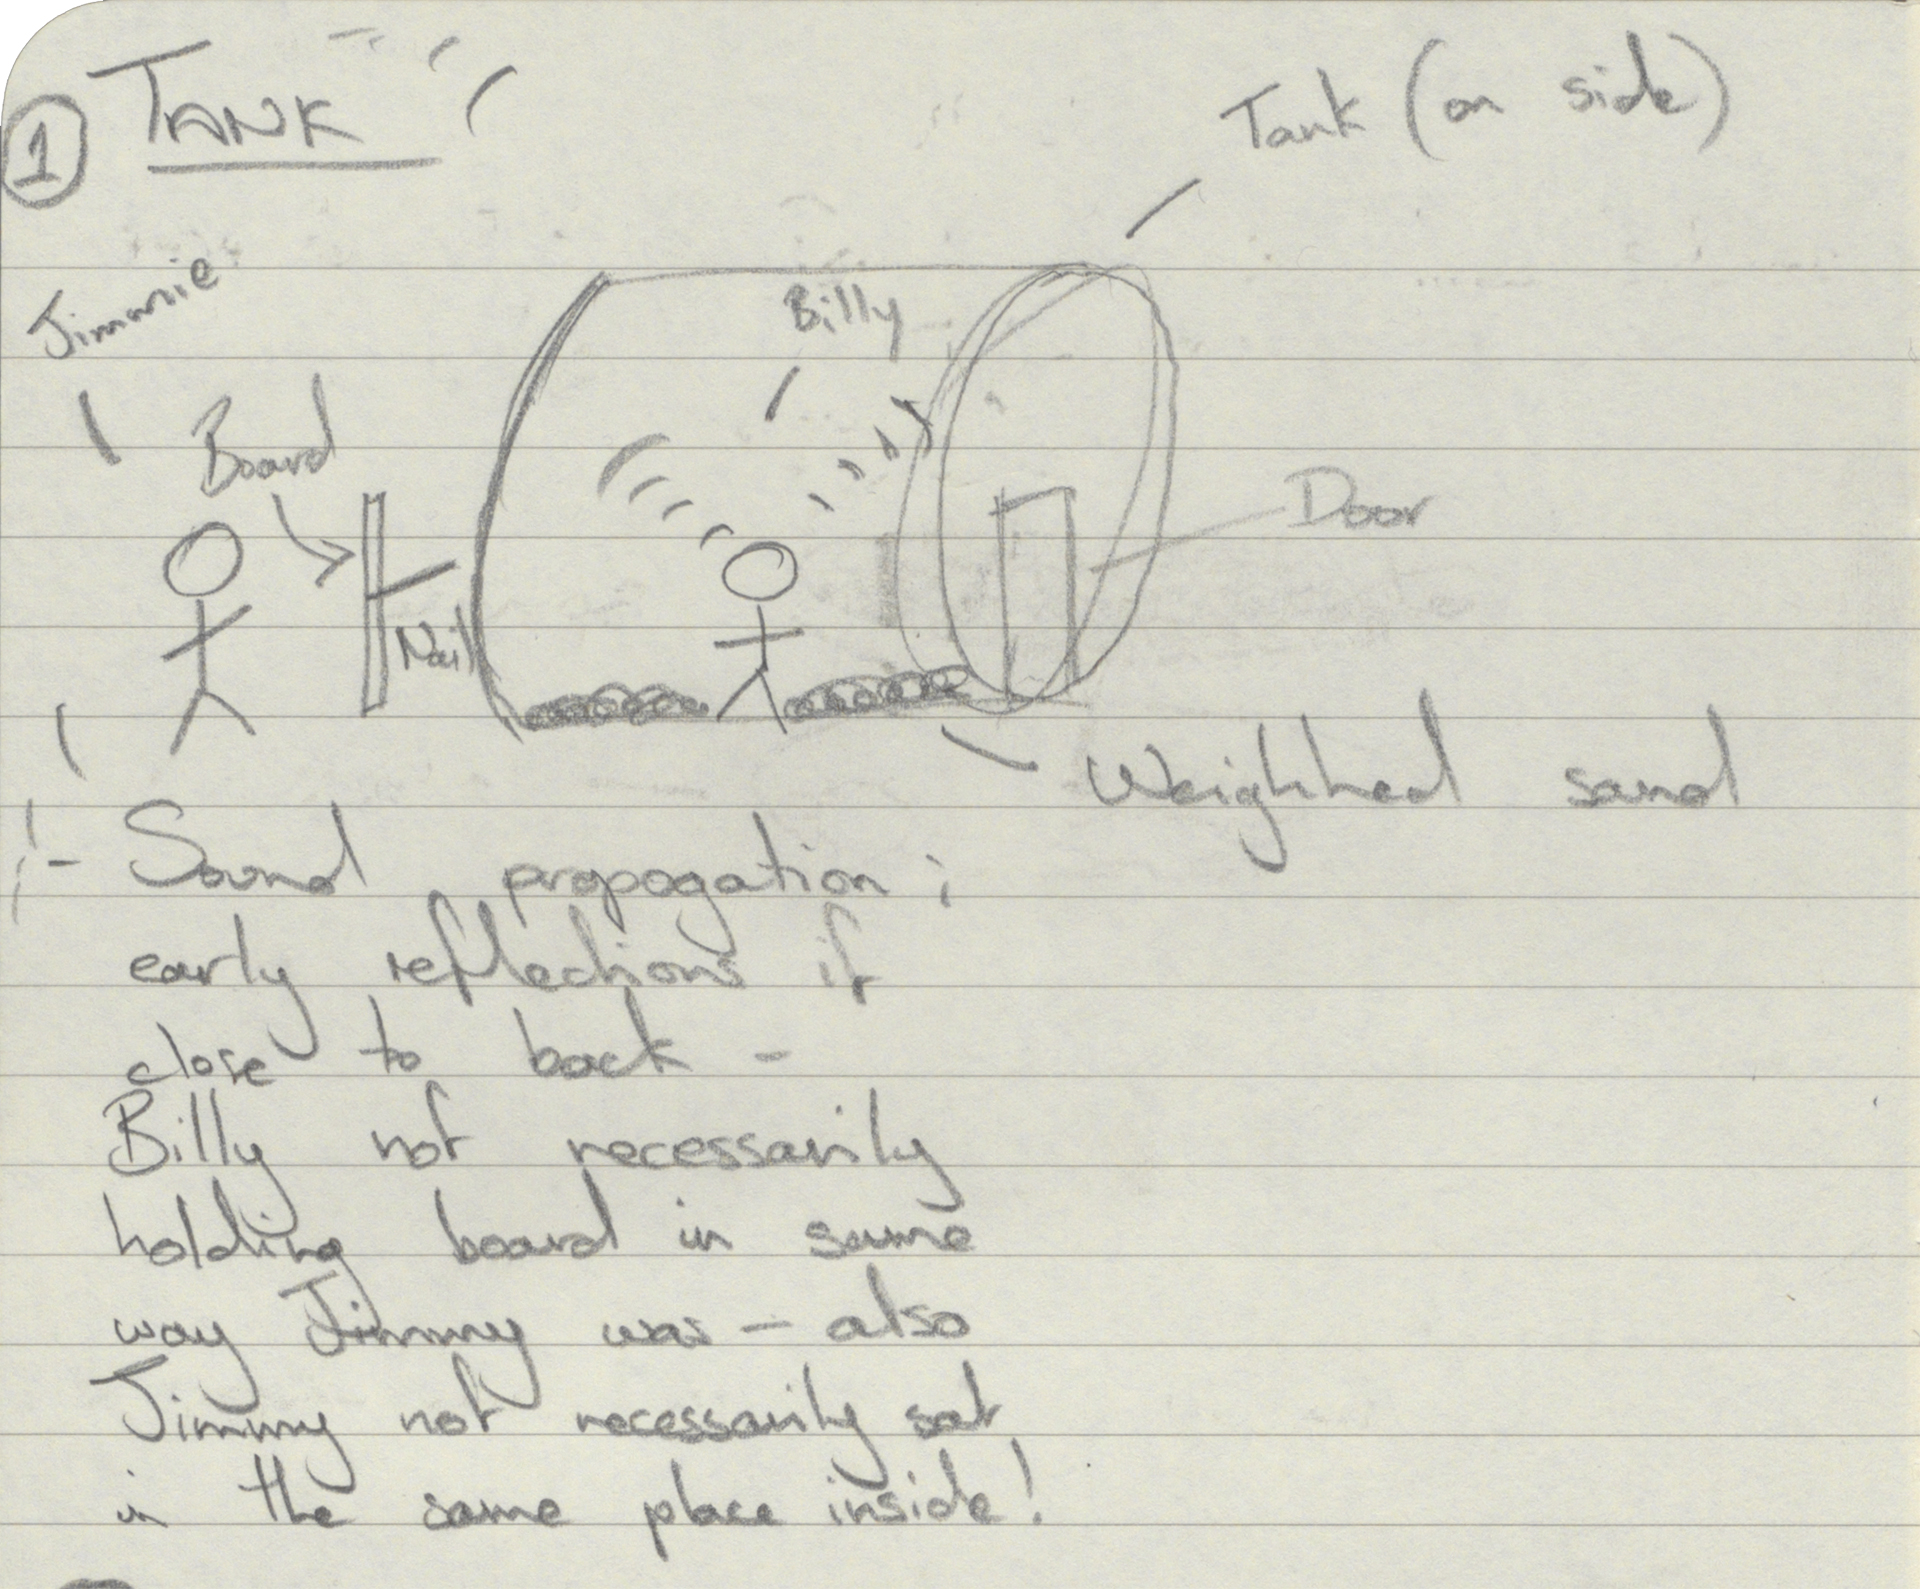 1 TANK
Tank (on side)
Jimmie
Billy
Board
Door
Nail
Weighted sand
- Sound propogation;
early reflections if
close to back -
Billy not necessarily
holding board in same
way Jimmy was - also
Jimmy not necessarily sat
in the same place inside!